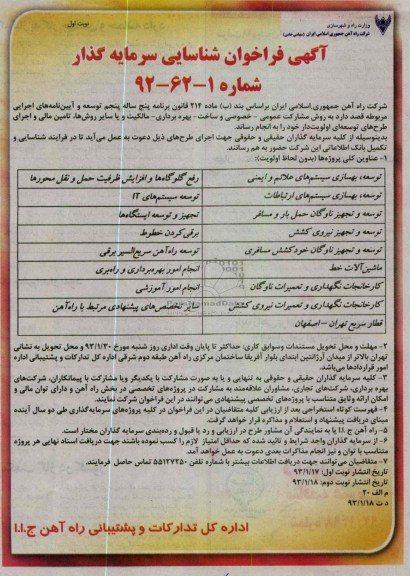 وزارت راه و شهرسازی
شرکت راه آهن جمهوری اسلامی ایران (سهامی خاص)
نوبت اول
آگهی فراخوان شناسایی سرمایه گذار
شماره ۱-۶۲-۹۲
شرکت راه آهن جمهوری اسلامی ایران براساس بند (ب) ماده ۲۱۴ قانون برنامه پنج ساله پنجم توسعه و آیین‌نامه‌های اجرایی
مربوطه قصد دارد به روش مشارکت عمومی - خصوصی و ساخت - بهره برداری - مالکیت و یا سایر روش‌ها، تامین مالی و اجرای
طرح‌های توسعه‌ای اولویت‌دار خود را به انجام رساند.
بدینوسیله از کلیه سرمایه گذاران حقیقی و حقوقی جهت اجرای طرح‌های ذیل دعوت به عمل می‌آید تا در فرایند شناسایی و
تکمیل بانک اطلاعاتی این شرکت حضور به هم رسانند.
۱- عناوین کلی پروژه‌ها (بدون لحاظ اولویت):
توسعه، بهسازی سیستم‌های علائم و ایمنی
رفع گلوگاه‌ها و افزایش ظرفیت حمل و نقل محورها
توسعه، بهسازی سیستم‌های ارتباطات
توسعه سیستم‌های IT
توسعه و تجهیز ناوگان حمل بار و مسافر
تجهیز و توسعه ایستگاه‌ها
توسعه و تجهیز نیروی کشش
برقی‌کردن خطوط
توسعه و تجهیز ناوگان خودکشش مسافری
توسعه راه‌آهن سریع‌السیر برقی
ماشین‌آلات خط
انجام امور بهره‌برداری و راهبری
کارخانجات نگهداری و تعمیرات ناوگان
انجام امور آموزشی
کارخانجات نگهداری و تعمیرات نیروی کشش
سایر تخصص‌های پیشنهادی مرتبط با راه‌آهن
قطار سریع تهران - اصفهان
۲- مهلت و محل تحویل مستندات وسوابق کاری: حداکثر تا پایان وقت اداری روز شنبه مورخ ۹۳/۱/۳۰ و محل تحویل به نشانی
تهران بالاتر از میدان آرژانتین ابتدای بلوار آفریقا ساختمان مرکزی راه آهن طبقه دوم شرقی اداره کل تدارکات و پشتیبانی اداره
امور قراردادها می‌باشد.
۳- کلیه سرمایه گذاران حقیقی و حقوقی به تنهایی و یا به صورت مشارکت با یکدیگر ویا مشارکت با پیمانکاران، شرکت‌های
بهره برداری، شرکت‌های تجاری، مشاوران علاقه‌مند به مشارکت در پروژه‌های تخصصی در بخش راه آهن و دارای توان مالی و
امکان ارائه وثایق متناسب با پروژه‌های تخصصی پیشنهادی می‌توانند در این فراخوان شرکت نمایند.
۴- فهرست کوتاه استخراجی بعد از ارزیابی کلیه متقاضیان در این فراخوان در کلیه پروژه‌های سرمایه‌گذاری طی دو سال آینده
مبنای دریافت پیشنهاد و استعلام و مذاکره قرار خواهد گرفت.
۵- راه آهن ج.ا.ا یا به نمایندگی آن مشاور طرح در ارزیابی و رد یا قبول و رده‌بندی سرمایه گذاران مختار است.
۶- از سرمایه گذاران واجد شرایط و تائید شده که حداقل امتیاز لازم را کسب نموده باشند جهت دریافت اسناد نهایی هر پروژه
متناسب با توان و نیز انجام مذاکرات بعدی دعوت به عمل خواهد آمد.
۷- متقاضیان می‌توانند جهت دریافت اطلاعات بیشتر با شماره تلفن ۵۵۱۲۷۲۵۰ تماس حاصل فرمایند.
تاریخ انتشار نوبت اول: ۹۳/۱/۱۷
تاریخ انتشار نوبت دوم: ۹۳/۱/۱۸
م الف ۲۰
د ت ۹۳/۱/۱۸
اداره کل تدارکات و پشتیبانی راه آهن ج.ا.ا